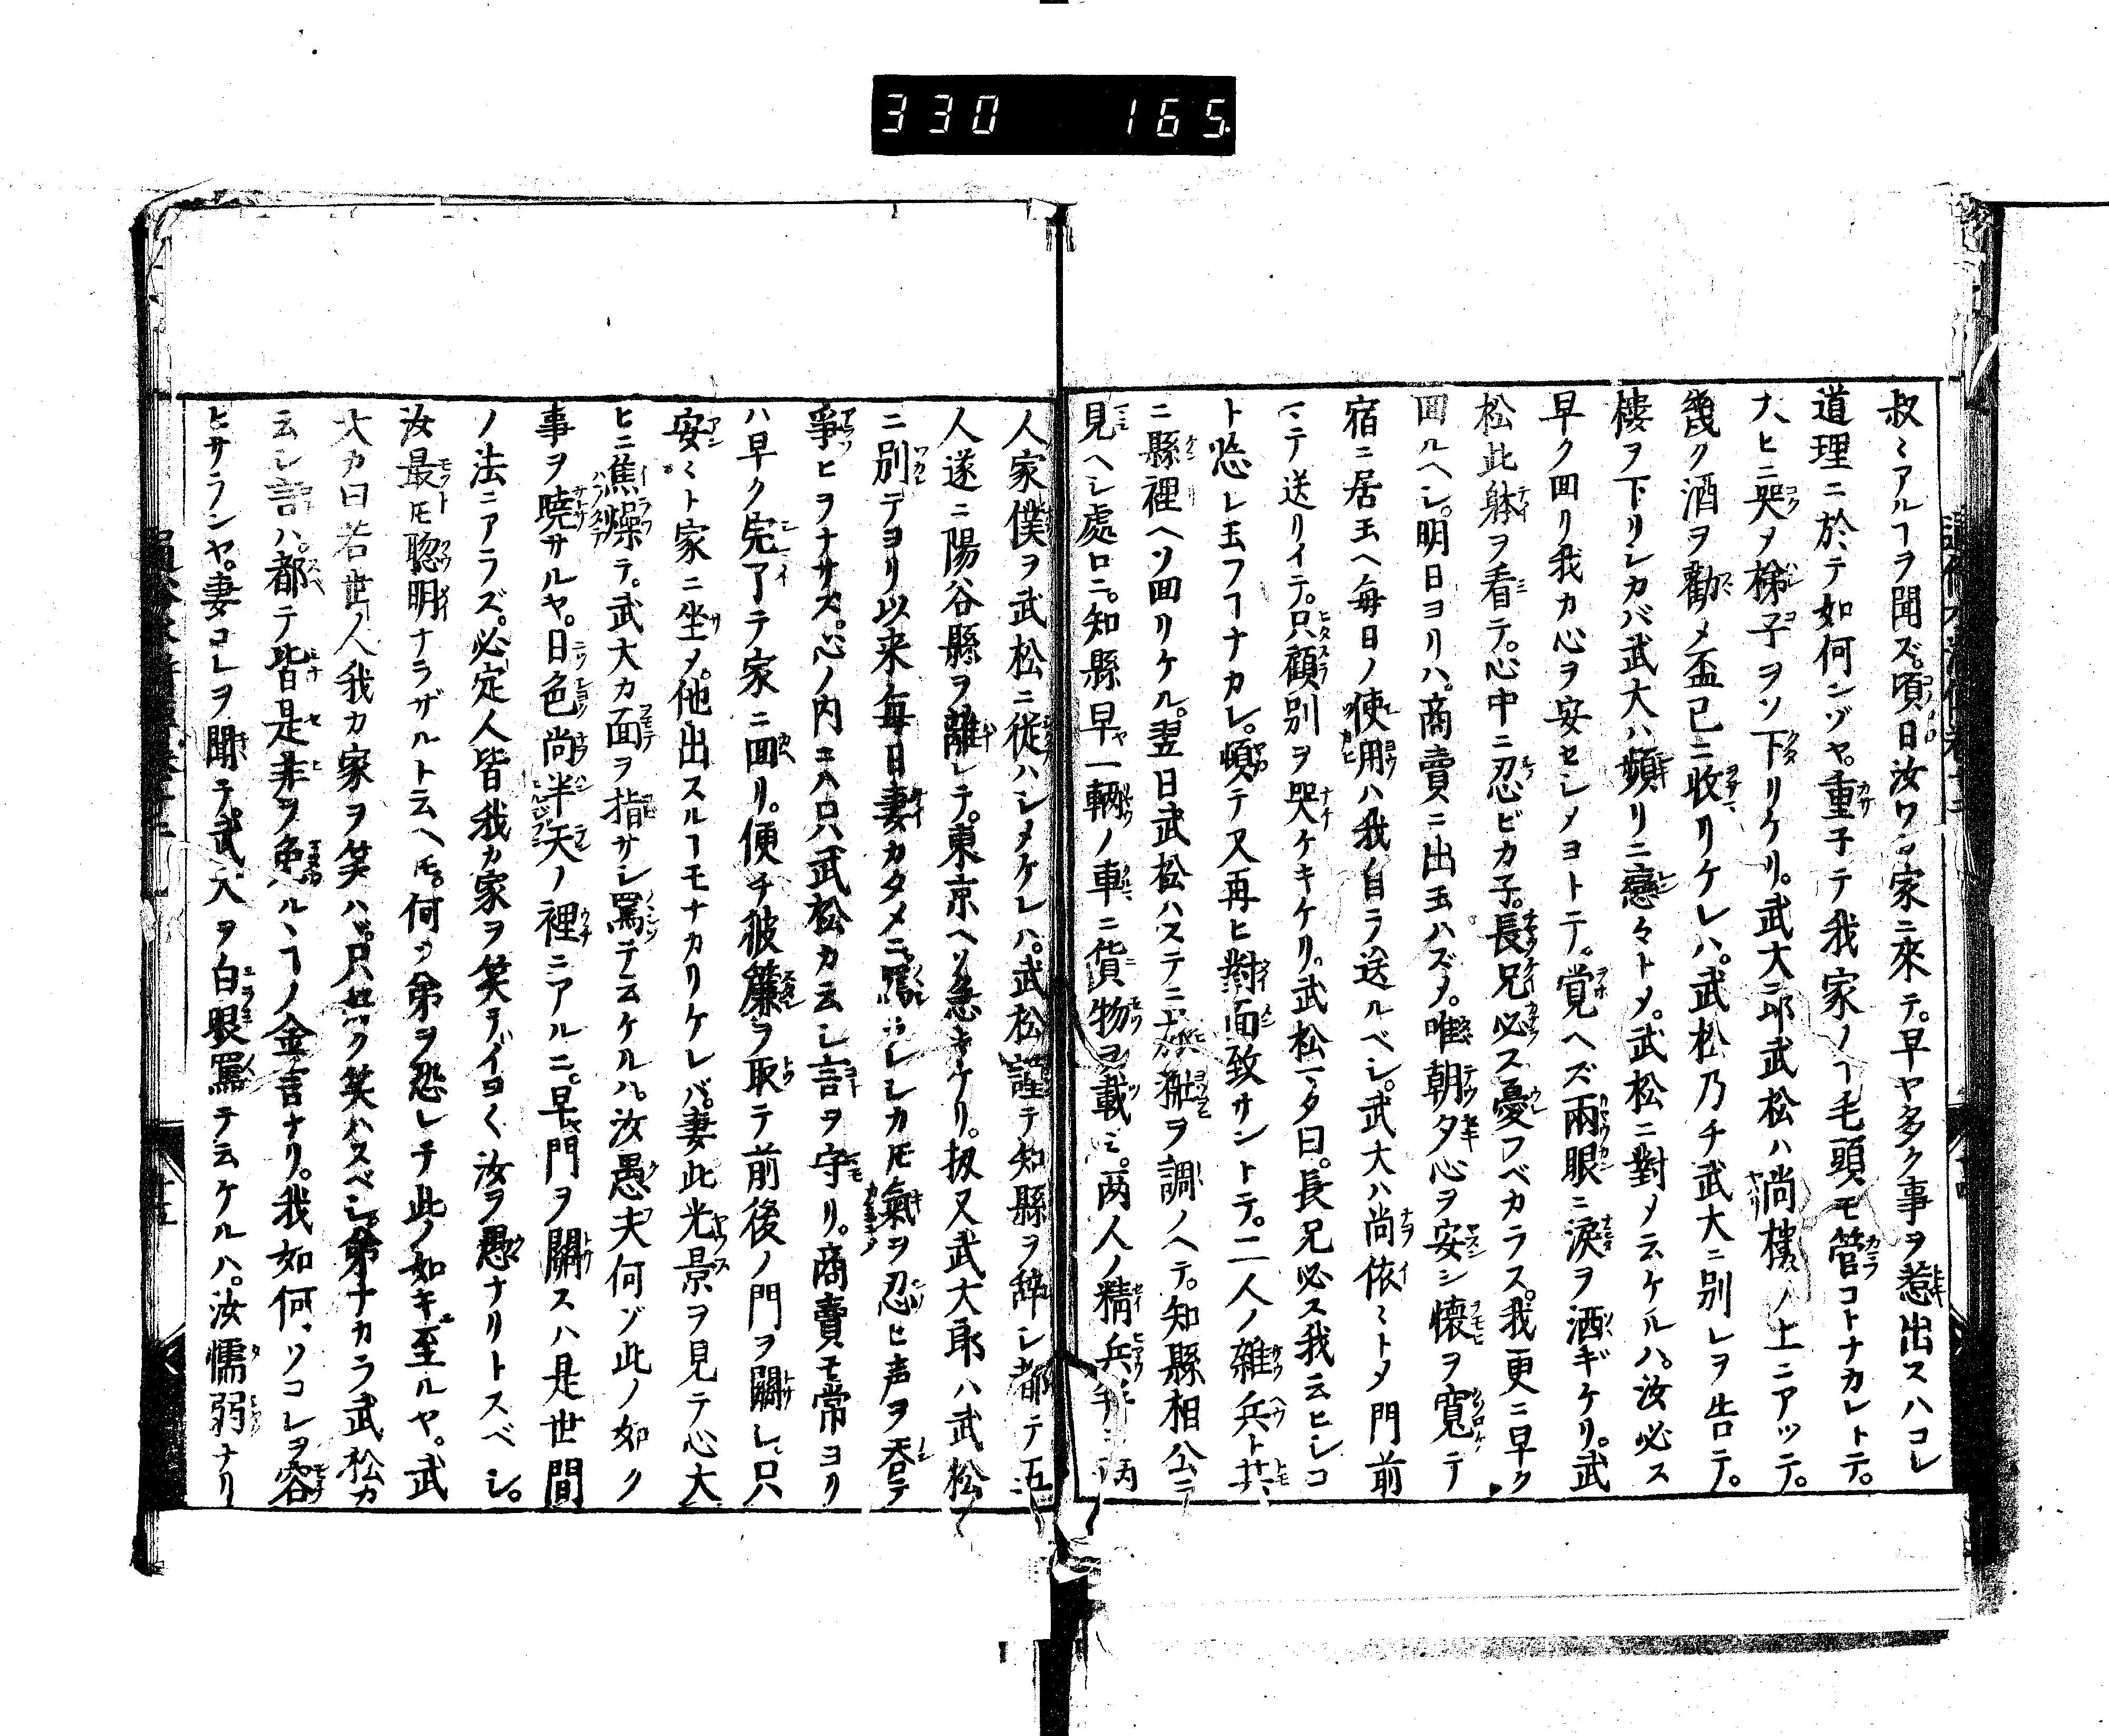 330 165
叔ミアルヿヲ聞ズ。頃日汝ワガ家ニ來テ。早ヤ多ク事ヲ惹出スハコレ
道理ニ於テ如何ンゾヤ。重子テ我家ノヿ毛頭モ管コトナカレトテ。
大ヒニ哭メ梯子ヲソ下リケリ。武大郎武松ハ尚樓ノ上ニアツテ。
幾ク酒ヲ勸メ盃已ニ收リケレハ。武松乃チ武大ニ別レヲ告テ。
樓ヲ下リシカバ武大ハ頻リニ戀々トメ。武松ニ對メ云ケルハ。汝必ス
早ク回リ我カ心ヲ安セシメヨトテ。覚ヘズ兩眼ニ淚ヲ洒ギケリ。武
松此躰ヲ看テ。心中ニ忍ビカ子。長兄必ス憂フベカラス。我更ニ早ク
回ルヘシ。明日ヨリハ。商賣ニ出玉ハズメ。唯朝夕心ヲ安シ懷ヲ寬テ
宿ニ居玉ヘ每日ノ使用ハ我自ラ送ルベシ。武大ハ尚依ミトメ門前
ニテ送リイテ。只顧別ヲ哭ケキケリ。武松亦タ曰。長兄必ス我云ヒシコ
ト忘レ玉フヿナカレ。頓テ又再ヒ對面致サントテ。二人ノ雜兵ト共
ニ縣裡ヘソ回リケル。翌日武松ハステニ旅粧ヲ調ノヘテ。知縣相公ニ
見ヘシ處ロニ。知縣早一輛ノ車ニ貨物ヲ載ミ。两人ノ精兵ト两
人家僕ヲ武松ニ従ハシメケレハ。武松謹テ知縣ヲ辞レ都テ五
人遂ニ陽谷縣ヲ離レテ。東京ヘソ急キケリ。扨又武大郎ハ武松
ニ別テヨリ以来每日妻カタメニ罵ラレシカ𪜈氣ヲ忍ヒ声ヲ吞テ
爭ヒヲナサズ。心ノ内ニハ只武松カ云シ言ヲ守リ。商賣モ常ヨリ
ハ早ク完了テ家ニ回リ。便チ彼簾ヲ取テ前後ノ門ヲ關シ只
安ミト家ニ坐メ。他出スルヿモナカリケレバ。妻此光景ヲ見テ心大
ヒニ焦燥テ。武大カ面ヲ指サシ罵テ云ケルハ。汝愚夫何ゾ此ノ如ク
事ヲ曉サルヤ。日色尚半天ノ裡ニアルニ。早門ヲ關スハ是世間
ノ法ニアラズ。必定人皆我カ家ヲ笑テイヨく汝ヲ愚ナリトスベシ。
汝最𪜈聡明ナラザルト云ヘ𪜈。何ソ弟ヲ恐レテ此ノ如キニ至ルヤ。武
大カ曰若世人我カ家ヲ笑ハヾ。只世ク笑ハスベシ。弟ナカラ武松カ
云レ言ハ。都テ皆是非ヲ免ルヽヿノ金言ナリ。我如何ソコレヲ容
ヒサランヤ。妻コレヲ聞テ。武大ヲ白眼罵テ云ケルハ。汝懦弱ナリ